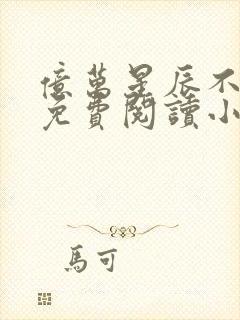 億萬星辰不
免費閱讀小
馬可